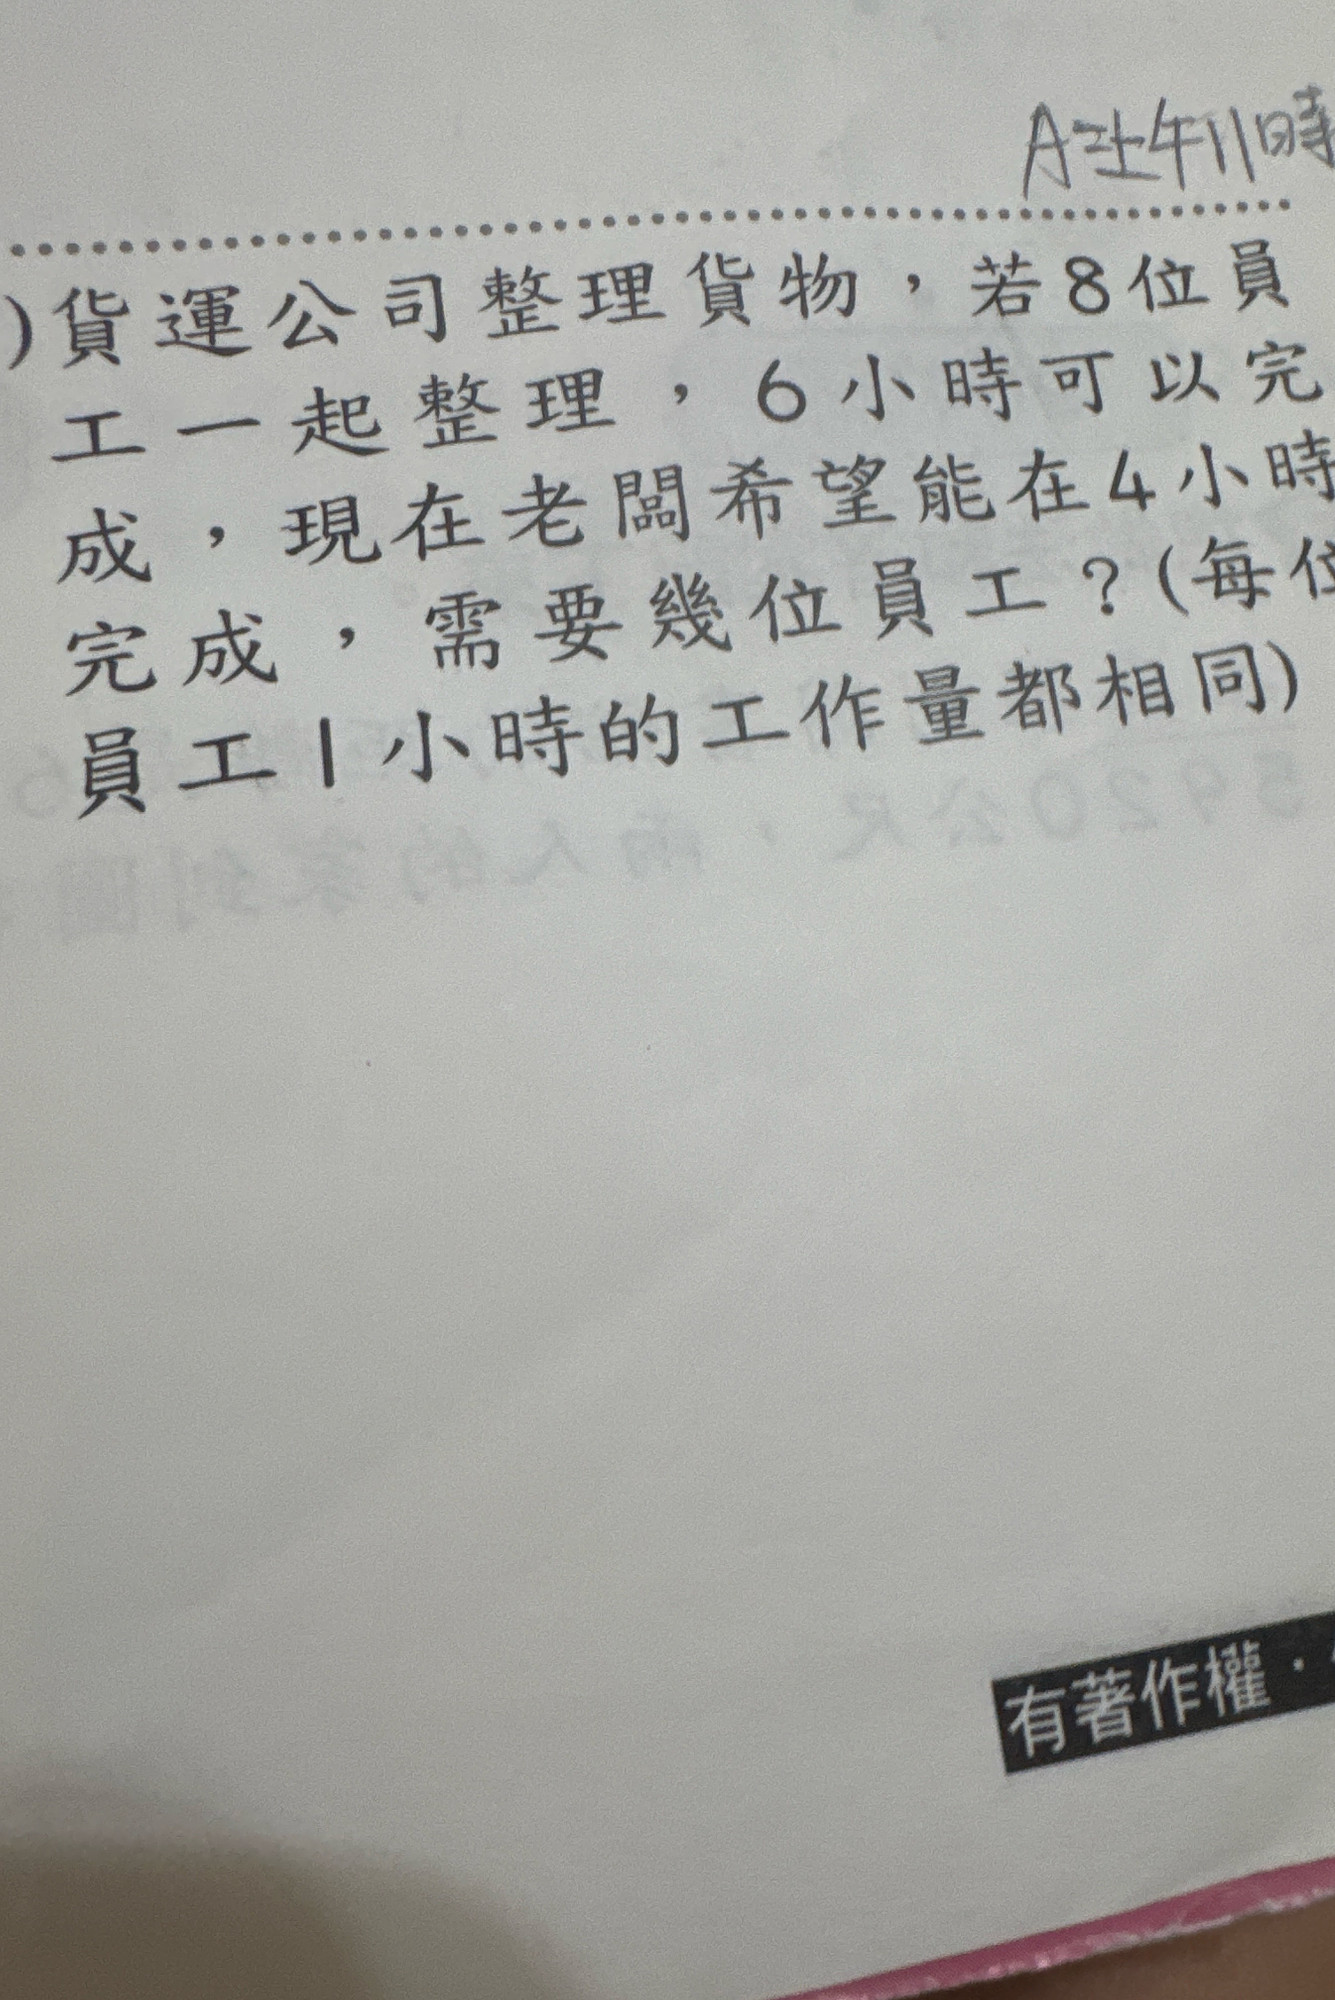 A:上午11時
)貨運公司整理貨物，若8位員
工一起整理，6小時可以完
成，現在老闆希望能在4小時
完成，需要幾位員工？(每位
員工1小時的工作量都相同)
5920公尺，兩人的家到圖
有著作權・